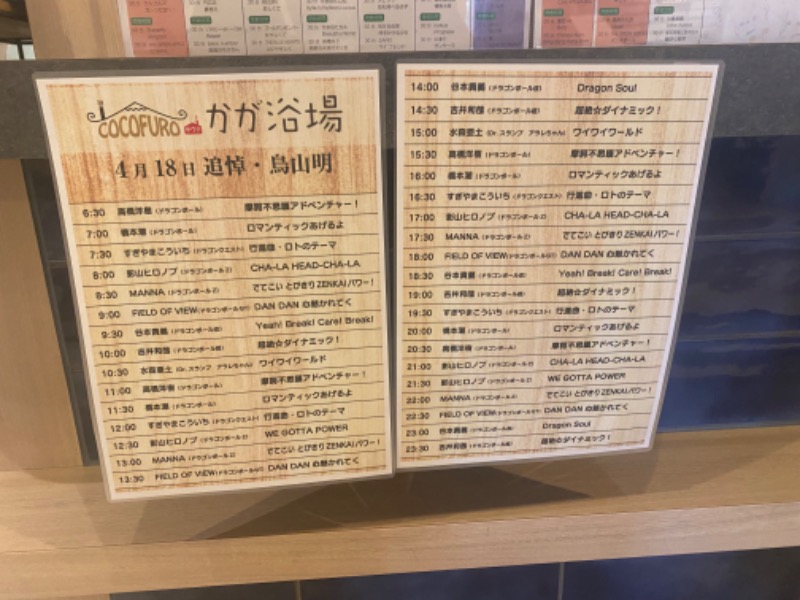 COCOFURO かが浴場
4月18日 追悼・鳥山明
6:30 高橋洋樹（ドラゴンボール） 摩訶不思議アドベンチャー！
7:00 橋本潮（ドラゴンボール） ロマンティックあげるよ
7:30 すぎやまこういち（ドラゴンクエスト） 行進曲・ロトのテーマ
8:00 影山ヒロノブ（ドラゴンボールZ） CHA-LA HEAD-CHA-LA
8:30 MANNA（ドラゴンボールZ） でてこい とびきりZENKAIパワー！
9:00 FIELD OF VIEW（ドラゴンボールGT） DAN DAN 心魅かれてく
9:30 谷本貴義（ドラゴンボール改） Yeah! Break! Care! Break!
10:00 吉井和哉（ドラゴンボール改） 超絶☆ダイナミック！
10:30 水森亜土（Dr.スランプ アラレちゃん） ワイワイワールド
11:00 高橋洋樹（ドラゴンボール） 摩訶不思議アドベンチャー！
11:30 橋本潮（ドラゴンボール） ロマンティックあげるよ
12:00 すぎやまこういち（ドラゴンクエスト） 行進曲・ロトのテーマ
12:30 影山ヒロノブ（ドラゴンボールZ） WE GOTTA POWER
13:00 MANNA（ドラゴンボールZ） でてこい とびきりZENKAIパワー！
13:30 FIELD OF VIEW（ドラゴンボールGT） DAN DAN 心魅かれてく
14:00 谷本貴義（ドラゴンボール改） Dragon Soul
14:30 吉井和哉（ドラゴンボール改） 超絶☆ダイナミック！
15:00 水森亜土（Dr.スランプ アラレちゃん） ワイワイワールド
15:30 高橋洋樹（ドラゴンボール） 摩訶不思議アドベンチャー！
16:00 橋本潮（ドラゴンボール） ロマンティックあげるよ
16:30 すぎやまこういち（ドラゴンクエスト） 行進曲・ロトのテーマ
17:00 影山ヒロノブ（ドラゴンボールZ） CHA-LA HEAD-CHA-LA
17:30 MANNA（ドラゴンボールZ） でてこい とびきりZENKAIパワー！
18:00 FIELD OF VIEW（ドラゴンボールGT） DAN DAN 心魅かれてく
18:30 谷本貴義（ドラゴンボール改） Yeah! Break! Care! Break!
19:00 吉井和哉（ドラゴンボール改） 超絶☆ダイナミック！
19:30 すぎやまこういち（ドラゴンクエスト） 行進曲・ロトのテーマ
20:00 橋本潮（ドラゴンボール） ロマンティックあげるよ
20:30 高橋洋樹（ドラゴンボール） 摩訶不思議アドベンチャー！
21:00 影山ヒロノブ（ドラゴンボールZ） CHA-LA HEAD-CHA-LA
21:30 影山ヒロノブ（ドラゴンボールZ） WE GOTTA POWER
22:00 MANNA（ドラゴンボールZ） でてこい とびきりZENKAIパワー！
22:30 FIELD OF VIEW（ドラゴンボールGT） DAN DAN 心魅かれてく
23:00 谷本貴義（ドラゴンボール改） Dragon Soul
23:30 吉井和哉（ドラゴンボール改） 超絶☆ダイナミック！